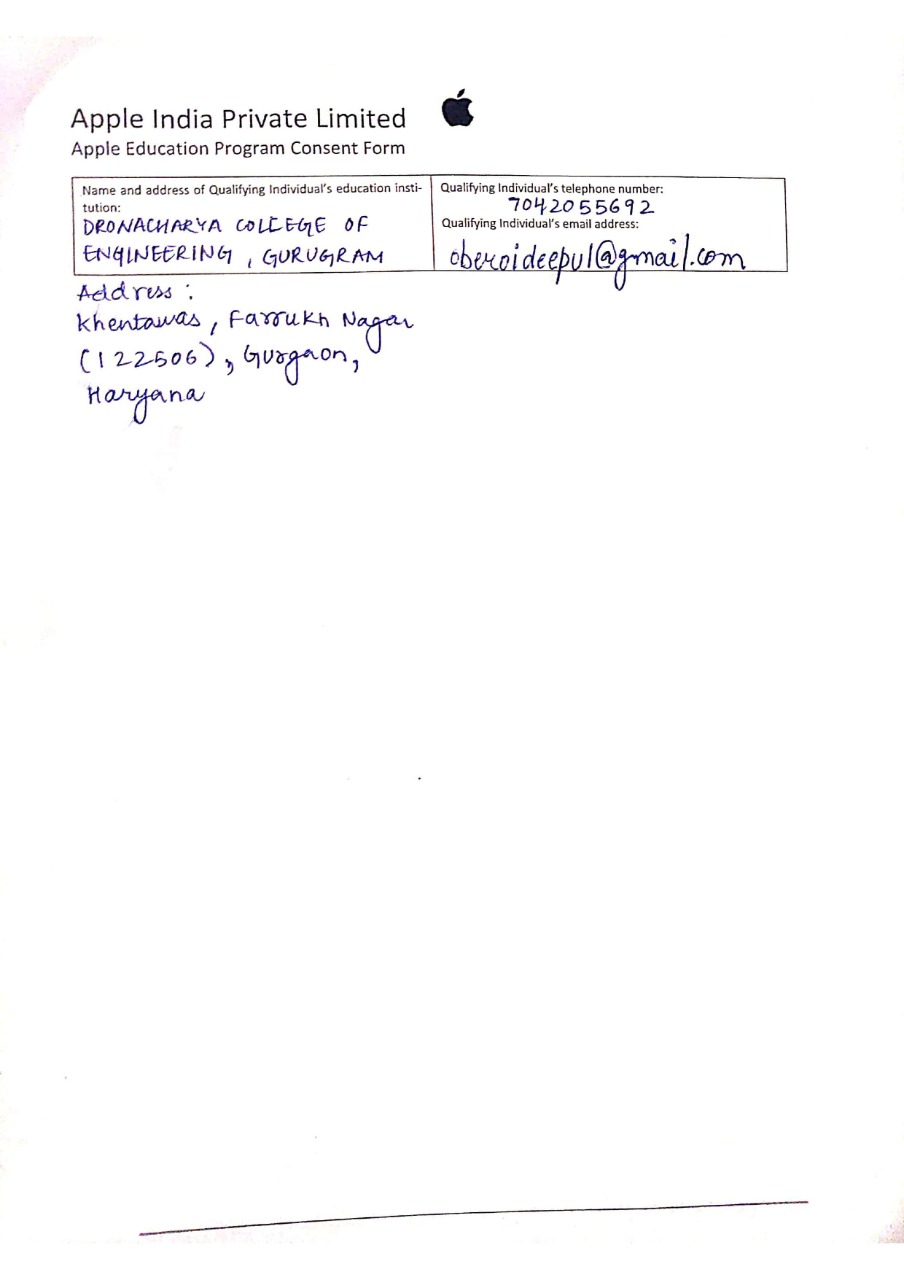 Apple India Private Limited
Apple Education Program Consent Form
Name and address of Qualifying Individual's education insti-
tution:
DRONACHARYA COLLEGE OF
ENGINEERING , GURUGRAM
Qualifying Individual's telephone number:
7042055692
Qualifying Individual's email address:
oberoideepul@gmail.com
Address :
Khentawas , Farrukh Nagar
(122506) , Gurgaon,
Haryana